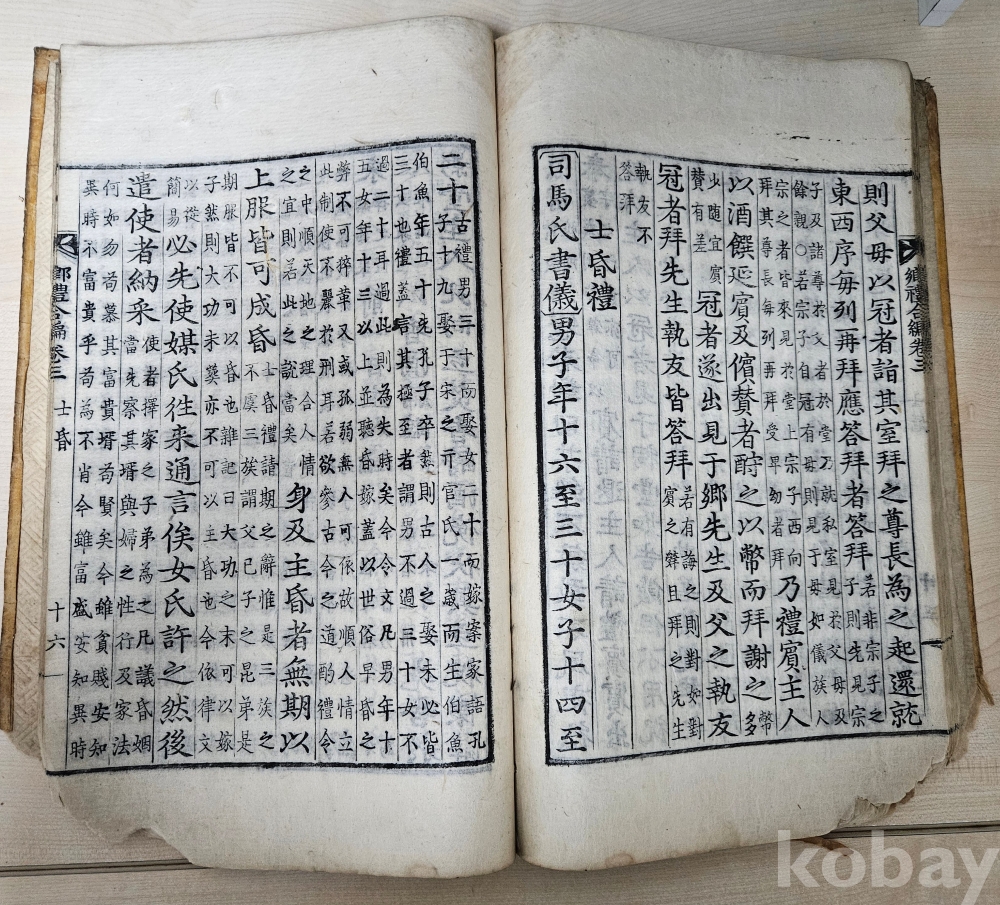 則父母以冠者詣其室拜之尊長為之起還就
東西序每列再拜應答拜者答拜
若非宗子之
子則先見宗
子及諸尊於父者於堂乃就私室見於父母及
餘親○若宗子自冠有母則見于母如儀族人
宗之者皆來見於堂上宗子西向
拜其尊長每列再拜受卑幼者拜
乃禮賓主人
以酒饌延賓及儐贊者酧之以幣而拜謝之
幣
多
少隨宜賓
贊有差
冠者遂出見于鄉先生及父之執友
冠者拜先生執友皆答拜
若有誨之則對如對
賓之辭且拜之先生
執友不
答拜
士昏禮
司馬氏書儀男子年十六至三十女子十四至
鄉禮合編卷三
二十
古禮男三十而娶女二十而嫁案家語孔
子十九娶于宋之亓官氏一歲而生伯魚
伯魚年五十先孔子卒然則古人之娶未必皆
三十也禮蓋言其極至者謂男不過三十女不
過二十耳過此則為失時矣今令文凡男年十
五女年十三以上並聽昏嫁蓋以世俗早昏之
弊不可猝革又或孤弱無人可依故順人情立
此制使不麗於刑耳若欲參古今之道酌禮令
之中順天地之理合人情
之宜則若此之說當矣
身及主昏者無期以
上服皆可成昏
士昏禮請期之辭惟是三族之
不虞三族謂父已子之昆弟是
期服皆不可以昏也雜記曰大功之末可以嫁
子然則大功未葬亦不可以主昏也今依律文
以從
簡易
必先使媒氏往来通言俟女氏許之然後
遣使者納采
使者擇家之子弟為之凡議昏姻
當先察其壻與婦之性行及家法
何如勿苟慕其富貴壻苟賢矣今雖貧賤安知
異時不富貴乎苟為不肖今雖富盛安知異時
鄉禮合編卷三 士昏 十六
kobay